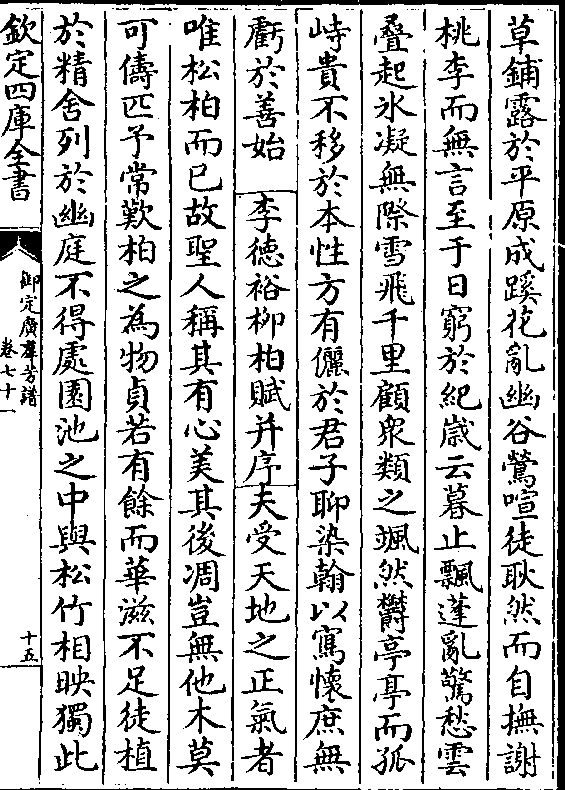 草鋪露於平原成蹊花亂幽谷鶯喧徒耿然而自撫謝
桃李而無言至于日窮於紀嵗云暮止飄蓬亂驚愁雲
疊起氷凝無際雪飛千里顧衆類之颯然欝亭亭而孤
峙貴不移於本性方有儷於君子聊染翰以寫懷庶無
虧於善始　李德裕栁柏賦并序夫受天地之正氣者
唯松柏而已故聖人稱其有心美其後凋豈無他木莫
可儔匹予常歎柏之為物貞若有餘而華滋不足徒植
於精舍列於幽庭不得處園池之中與松竹相映獨此
欽定四庫全書
御定廣羣芳譜
卷七十一
十五